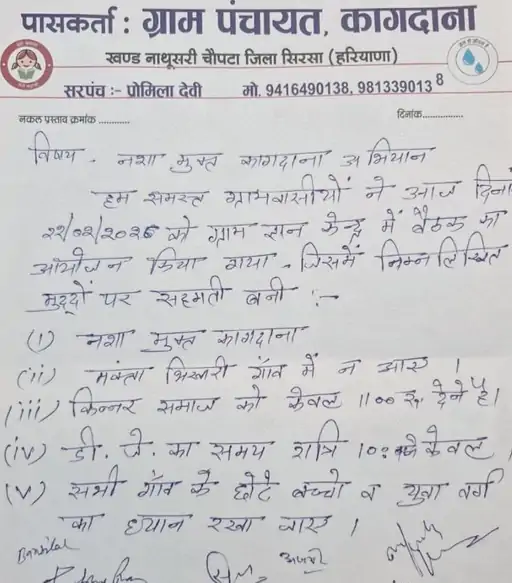 पासकर्ता : ग्राम पंचायत, कागदाना
खण्ड नाथूसरी चौपटा जिला सिरसा (हरियाणा)
सरपंच :- प्रोमिला देवी मो. 9416490138, 9813390138
नकल प्रस्ताव क्रमांक ............ दिनांक................
विषय - नशा मुक्त कागदाना अभियान
हम समस्त ग्रामवासीयों ने आज दिनां
22/02/2026 को ग्राम ज्ञान केन्द्र में बैठक का
आयोजन किया गया - जिसमें निम्नलिखित
मुद्दों पर सहमती बनी :-
(i) नशा मुक्त कागदाना
(ii) मंक्ता भिखारी गाँव में न आए ।
(iii) किन्नर समाज को केवल 1100 रू देने है।
(iv) डी. जे. का समय रात्रि 10:00 बजे केवल
(v) सभी गाँव के छोटे बच्चो व युवा वर्ग
का ध्यान रखा जाए ।